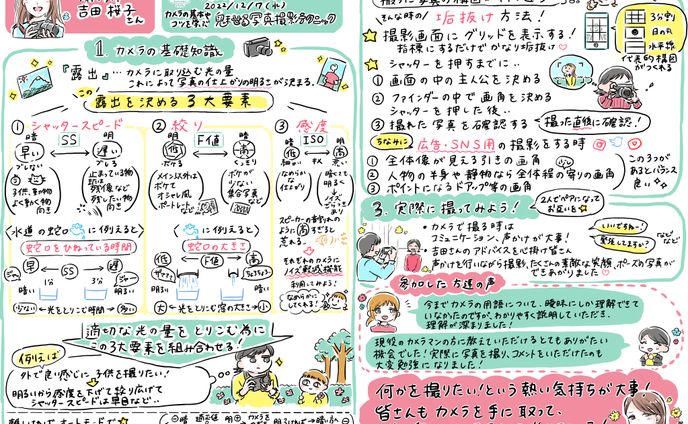 吉田 桜子さん
2022/12/7(水)
カメラの基本やコツを学ぶ
魅せる写真撮影テクニック
1. カメラの基礎知識
『露出』…カメラに取り込む光の量
これによって写真の仕上がりの明るさが決まる。
この
露出を決める3大要素
① シャッタースピード
暗 SS 明
早い 遅い
ブレない ブレる
② 絞り
暗 F値
低 高
ボケる くっきり
メイン以外は
ボケて
オシャレ風
ポートレート
ボケが
少ない
集合写真
など
③ 感度
暗 ISO 明
低 高
なめらか
な仕上がり
暗くても
明るく
ノイズ
ざらつき
あり
スピーカーの音割れの
ように高すぎると
荒れる。
それぞれのカメラに
ノイズ軽減機能
利用してみよう!
なめらかに
してくれる!
〈水道の蛇口に例えると〉
蛇口をひねっている時間
早 SS 遅
暗い 明るい
少ない 光をとりこむ時間 多い
〈に例えると〉
蛇口の大きさ
低 F値 高
大 光をとりこむ窓の大きさ 小
適切な光の量をとりこむ為に
この3大要素を組み合わせる!
例えば
外で良い感じに子供を撮りたい!
明るいから感度を下げて絞り広げて
シャッタースピードは早目など…
こんな時の!
垢抜け方法!
撮影画面にグリッドを表示する!
指標にするだけでかなり垢抜け
3分割
日の丸
水平線
代表的構図
がつくれる
シャッターを押すまでに…
① 画面の中の主人公を決める
② ファインダーの中で画角を決める
シャッターを押した後…
③ 撮れた写真を確認する
撮った直後に確認!
ちなみに
広告・SNS用の撮影をする時
① 全体像が見える引きの画角
② 人物の半身や静物なら全体程の寄りの画角
③ ポイントになるドアップ等の画角
この3つが
あるとバランス
良い
3. 実際に撮ってみよう!
2人でペアになって
お互いを
・カメラで撮る時は
コミュニケーション、声かけが大事!
いいですねー!
緊張してますか?
などなど
・吉田さんのアドバイスを心掛け皆さん
声かけを行いながら撮影。たくさんの素敵な笑顔、ポーズの写真が
できあがりました
参加した方達の声
今までカメラの用語について、曖昧にしか理解できて
いなかったのですが、わかりやすく説明していただき、
理解が深まりました!
現役のカメラマンの方に教えていただけるとてもありがたい
機会でした!実際に写真を撮り、コメントをいただけたのも
大変勉強になりました!
何かを撮りたい!という熱い気持ちが大事!
皆さんもカメラを手に取って、